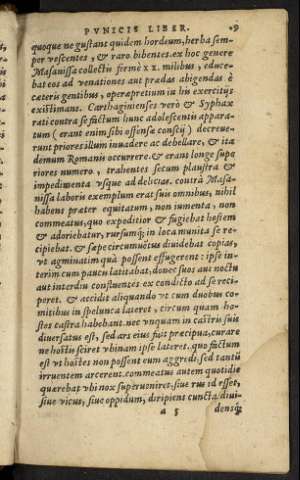 PVNICIS LIBER. 9
quoque ne gustant quidem hordeum, herba sem-
per vescentes, & raro bibentes. ex hoc genere
Masanissa collectis fermè xx. milibus, educe-
bat eos ad venationes aut prædas abigendas è
cæteris gentibus, operæpretium in his exercitijs
existimans. Carthaginienses verò & Syphax
rati contra se factum hunc adolescentis appara-
tum (erant enim sibi offensæ conscij) decreue-
runt priores illum inuadere ac debellare, & ita
demum Romanis occurrere. & erant longe supe
riores numero, trahentes secum plaustra &
impedimenta vsque ad delicias. contrà Masa-
nissa laboris exemplum erat suis omnibus, nihil
habens præter equitatum, non iumenta, non
commeatus, quo expeditior & fugiebat hostem
& adoriebatur, rursumq; in loca munita se re-
cipiebat. & sæpe circumuectus diuidebat copias,
vt agminatim quà possent effugerent: ipse in-
terim cum paucis latitabat, donec suos aut noctu
aut interdiu confluentes ex condicto ad se reci-
peret. & accidit aliquando vt cum duobus co-
mitibus in spelunca lateret, circum quam ho-
stes castra habebant. nec vnquam in castris suis
diuersatus est, sed ars eius fuit præcipua, curare
ne hostis sciret vbinam ipse lateret. quo factum
est vt hostes non possent eum aggredi, sed tantū
irruentem arcerent. commeatus autem quotidie
quærebat vbi nox superueniret. siue rus id esset,
siue vicus, siue oppidum, diripiens cuncta diui-
a 5 densq;